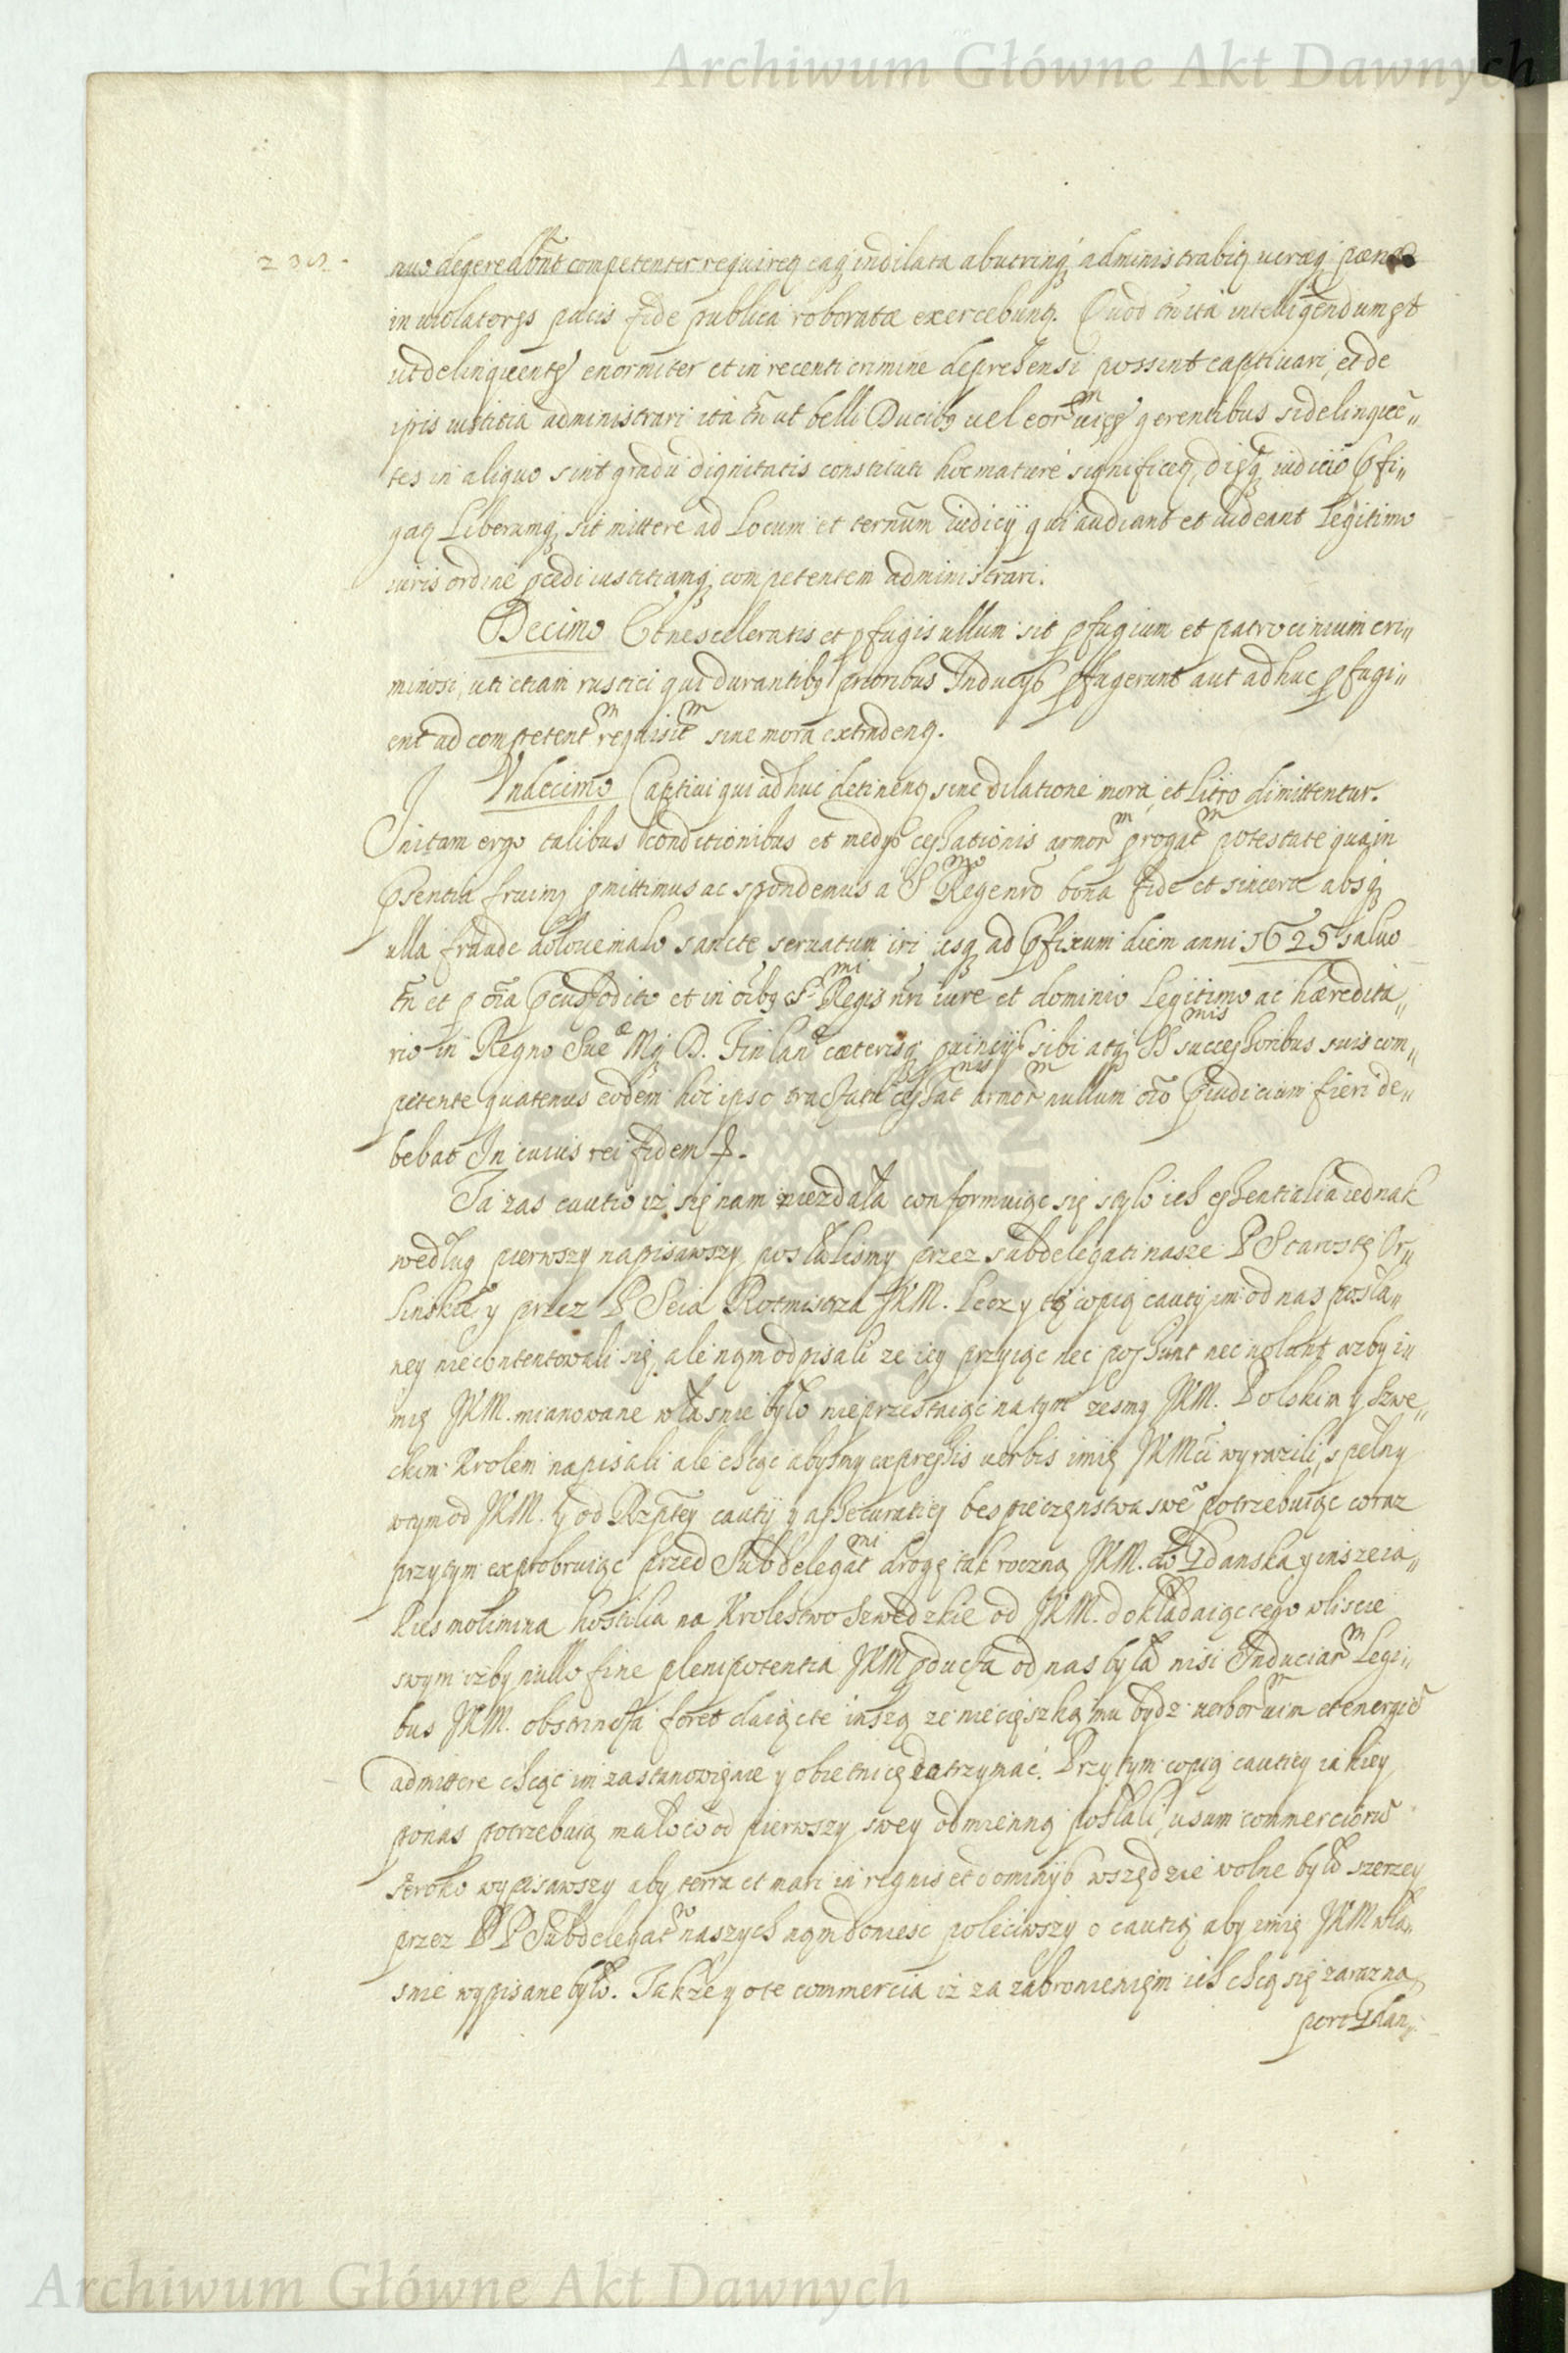 Archiwum Główne Akt Dawnych
235.
nuo degere dbnt competenter requiretq eaq indilata abutrinq administrabitq ueræq pænas
in uiolatores pacis fide publica roboratæ exercebunt. Quod tn ita intelligendum est
ut delinquentes enormiter et in recenti crimine deprehensi possint captiuari, et de
ipsis iustitia administrari ita tn ut belli Ducibq uel eorm uices gerentibus si delinquē„
tes in aliquo sint gradu dignitatis constituti hoc mature significetq, diesq iudicio pfi„
gatq Liberumq sit mittere ad Locum et ternum iudicij qui audiant et uideant Legitimo
iuris ordine pcedi iustitiamq competentem administrari.
Decimo Et ne sceleratis et pfugis ullum sit pfugium et patrocinium cri„
minosi, uti etiam rustici qui durantibq prioribus Inducijs pfugerunt aut adhuc pfugi„
ent ad competentm requisitm sine mora extradentq.
Vndecimo Captiui qui adhuc detinentq sine dilatione mora, et Litro dimittentur.
Initam ergo talibus conditionibus et medijs cessationis armorm prorogatm potestate qua in
psentia fruimq pmittimus ac spondemus a Smo Rege nro bona fide et sincere absq
ulla fraude doloue malo sancte seruatum iri usq ad pfixum diem anni 1625 saluo
tn et p oia pcustodito et in oibq Smi Regis nri iure et dominio Legitimo ac hæredita„
rio in Regno Sueæ Mq D. Finlanæ cæterisq puincijs sibi atq SSmis successoribus suis com„
petente quatenus eodem hoc ipso tractatu cessatnis armorm nullum oio piudicium fieri de„
beat In cuius rei fidem &.
Ta zas cautio iż się nam niezdała conformuiąc się stylo ich essentialia iednak
według pierwszy napisawszy posłalismy przez subdelegati nasze P Starostę Or„
linskie y przez P Seia Rotmistrza JKM. Lecz y tę copią cautij im od nas posła„
ney niecontentowali się, ale nąm odpisali ze iey przyiąc nec possunt nec uolunt azby i„
mię JKM. mianowane własnie było nieprzestaiąc na tym zesmy JKM. Polskim y Szwe„
ckim Krolem napisali ale chcąc abysmy expressis uerbis imię JKMci wyrazili, spełny
wtym od JKM. y od Rzptey cautij y assecuratiey bespieczęnstwa swe potrzebuiąc coraz
przytym exprobruiąc przed Subdelegatmi drogę tak roczną JKM. do Gdanska y insze ia„
kies molimina hostilia na Krolestwo Szwedzkie od JKM. dokładaiąc tego w liscie
swym izby nullo fine plenipotentia JKM pducta od nas była nisi Induciarm Legi„
bus JKM. obstricta foret daiąc te inszą ze nieciężką mu bydz uerborm uim et energiē
admittere chcąc im zastanowięnie y obietnicę zatrzymać. Przytym copią cautiey iakiey
ponas potrzebuią mało co od pierwszy swey odmienną posłali, usum commerciorū
szeroko wypisawszy aby terra et mari in regnis et dominijs wszędzie wolne było szerzey
przez PP Subdelegatw naszych nąm doniesc poleciwszy o cautią aby imię JKM wła„
snie wypisane było. Także y o te commercia iż za zabronienięm ich chcą się zaraz na
port Gdan„
Archiwum Główne Akt Dawnych